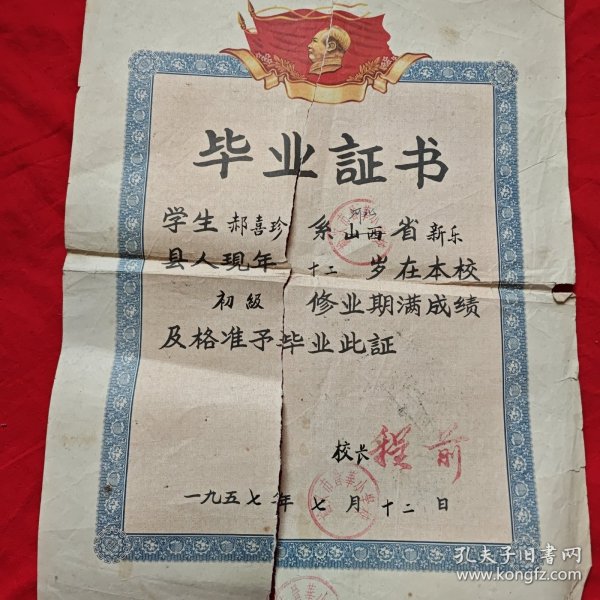 毕业証书
学生郝喜珍系河北山西省新乐
县人現年十二岁在本校
初級修业期满成績
及格准予毕业此証
校长程前
一九五七年七月十二日
孔夫子旧书网
www.kongfz.com